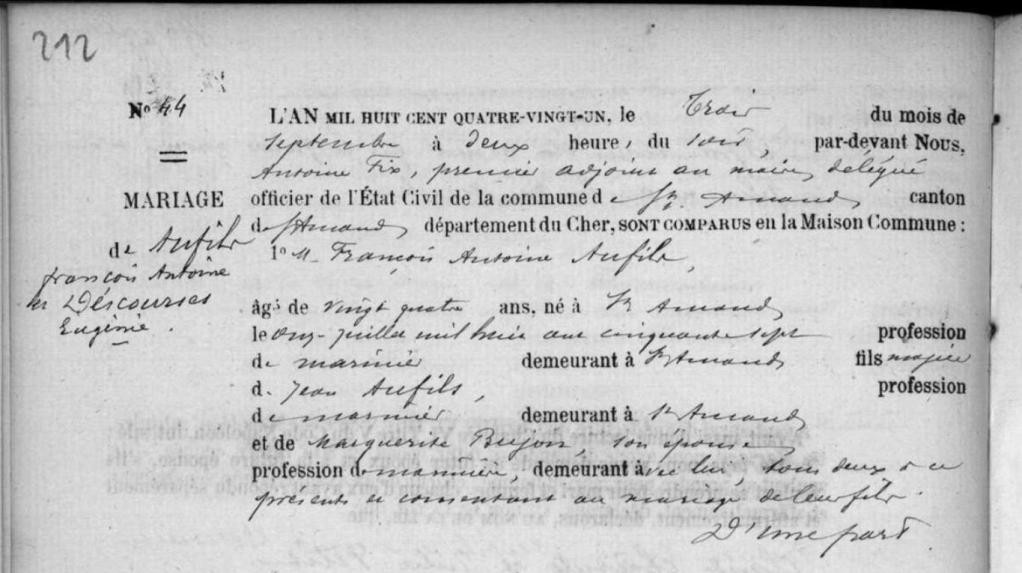 212
N° 44
MARIAGE
de Aufils
françois Antoine
et Descourses
Eugènie.
L'AN MIL HUIT CENT QUATRE-VINGT-UN, le Trois du mois de
Septembre à deux heures du soir, par-devant NOUS,
Antoine Fix, premier adjoint au maire, délégué
officier de l'État Civil de la commune de St Amand canton
de St Amand département du Cher, SONT COMPARUS en la Maison Commune :
1° M. François Antoine Aufils,
âgé de vingt quatre ans, né à St Amand
le onze juillet mil huit cent cinquante sept profession
de marinier demeurant à St Amand fils majeur
de Jean Aufils, profession
de marinier demeurant à St Amand
et de Marguerite Bujon, son épouse
profession de marinière demeurant à lieu tous deux à ce
présents et consentant au mariage de leur fils.
D'une part